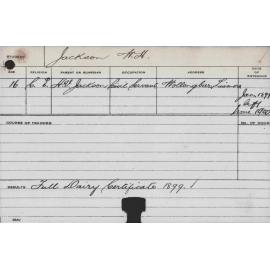 STUDENT Jackson W.H.
AGE RELIGION PARENT OR GUARDIAN OCCUPATION ADDRESS DATE OF ENTRANCE
16 C.E. Jackson Civil Servant Wollongbar, Lismore Jan 1898
Left
June 1900
COURSE OF TRAINING NO. OF HOURS
RESULTS Full Dairy Certificate 1899.